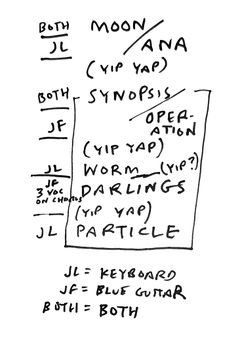 BOTH MOON /
JL ANA
(YIP YAP)
BOTH SYNOPSIS /
JF OPER-
ATION
(YIP YAP)
JL WORM (YIP?)
JF DARLINGS
3 VOC
ON CHORUS
(YIP YAP)
JL PARTICLE
JL = KEYBOARD
JF = BLUE GUITAR
BOTH = BOTH